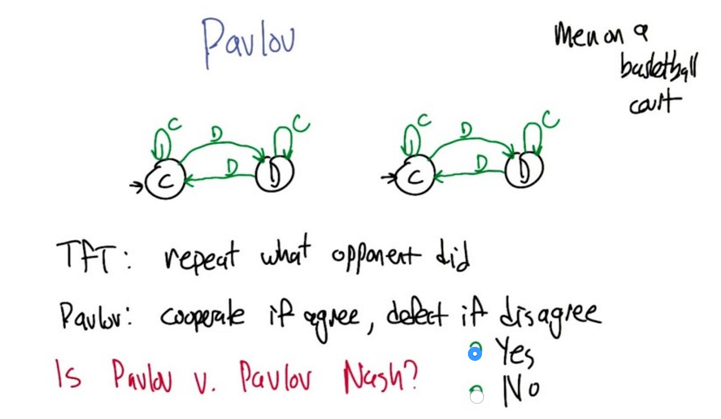 Pavlov
Men on a
basketball
court
C
D
C
D
C
D
C
D
C
D
C
D
TFT: repeat what opponent did
Pavlov: cooperate if agree, defect if disagree
Is Pavlov v. Pavlov Nash?
Yes
No